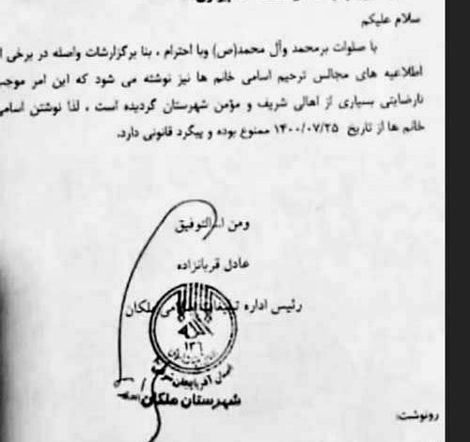 سلام علیکم
با صلوات برمحمد وآل محمد(ص) وبا احترام ، بنا برگزارشات واصله در برخی
اطلاعیه های مجالس ترحیم اسامی خانم ها نیز نوشته می شود که این امر موجب
نارضایتی بسیاری از اهالی شریف و مؤمن شهرستان گردیده است ، لذا نوشتن اسامی
خانم ها از تاریخ ۱۴۰۰/۰۷/۲۵ ممنوع بوده و پیگرد قانونی دارد.
ومن الله التوفیق
عادل قربانزاده
رئیس اداره تبلیغات اسلامی ملکان
استان آذربایجان شرقی
شهرستان ملکان
رونوشت: